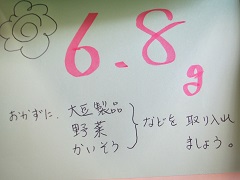 6.8g
おかずに、大豆製品
野菜
かいそう
などを取り入れ
ましょう。